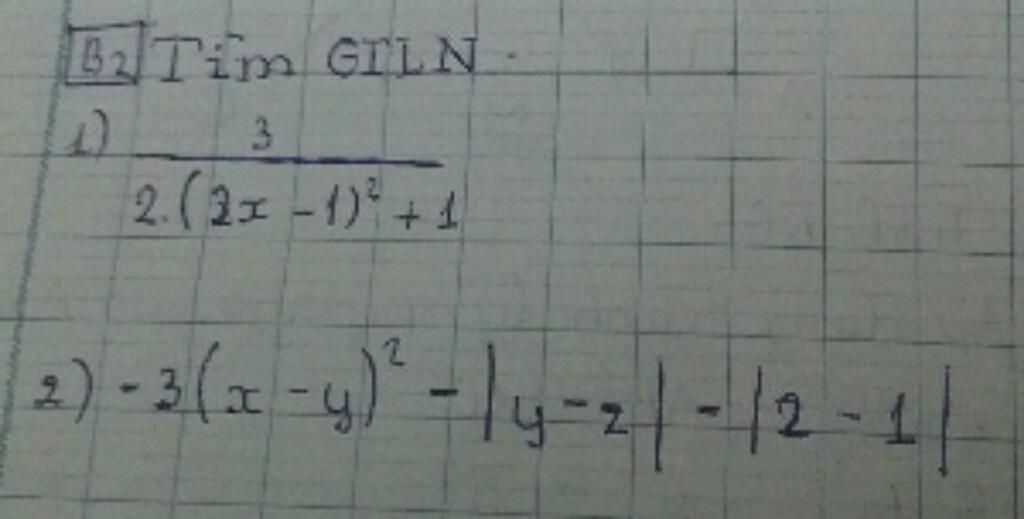 B2 Tìm GTLN.
1) 3
2.(2x - 1)² + 1
2) - 3(x - y)² - |y - z| - |2 - 1|